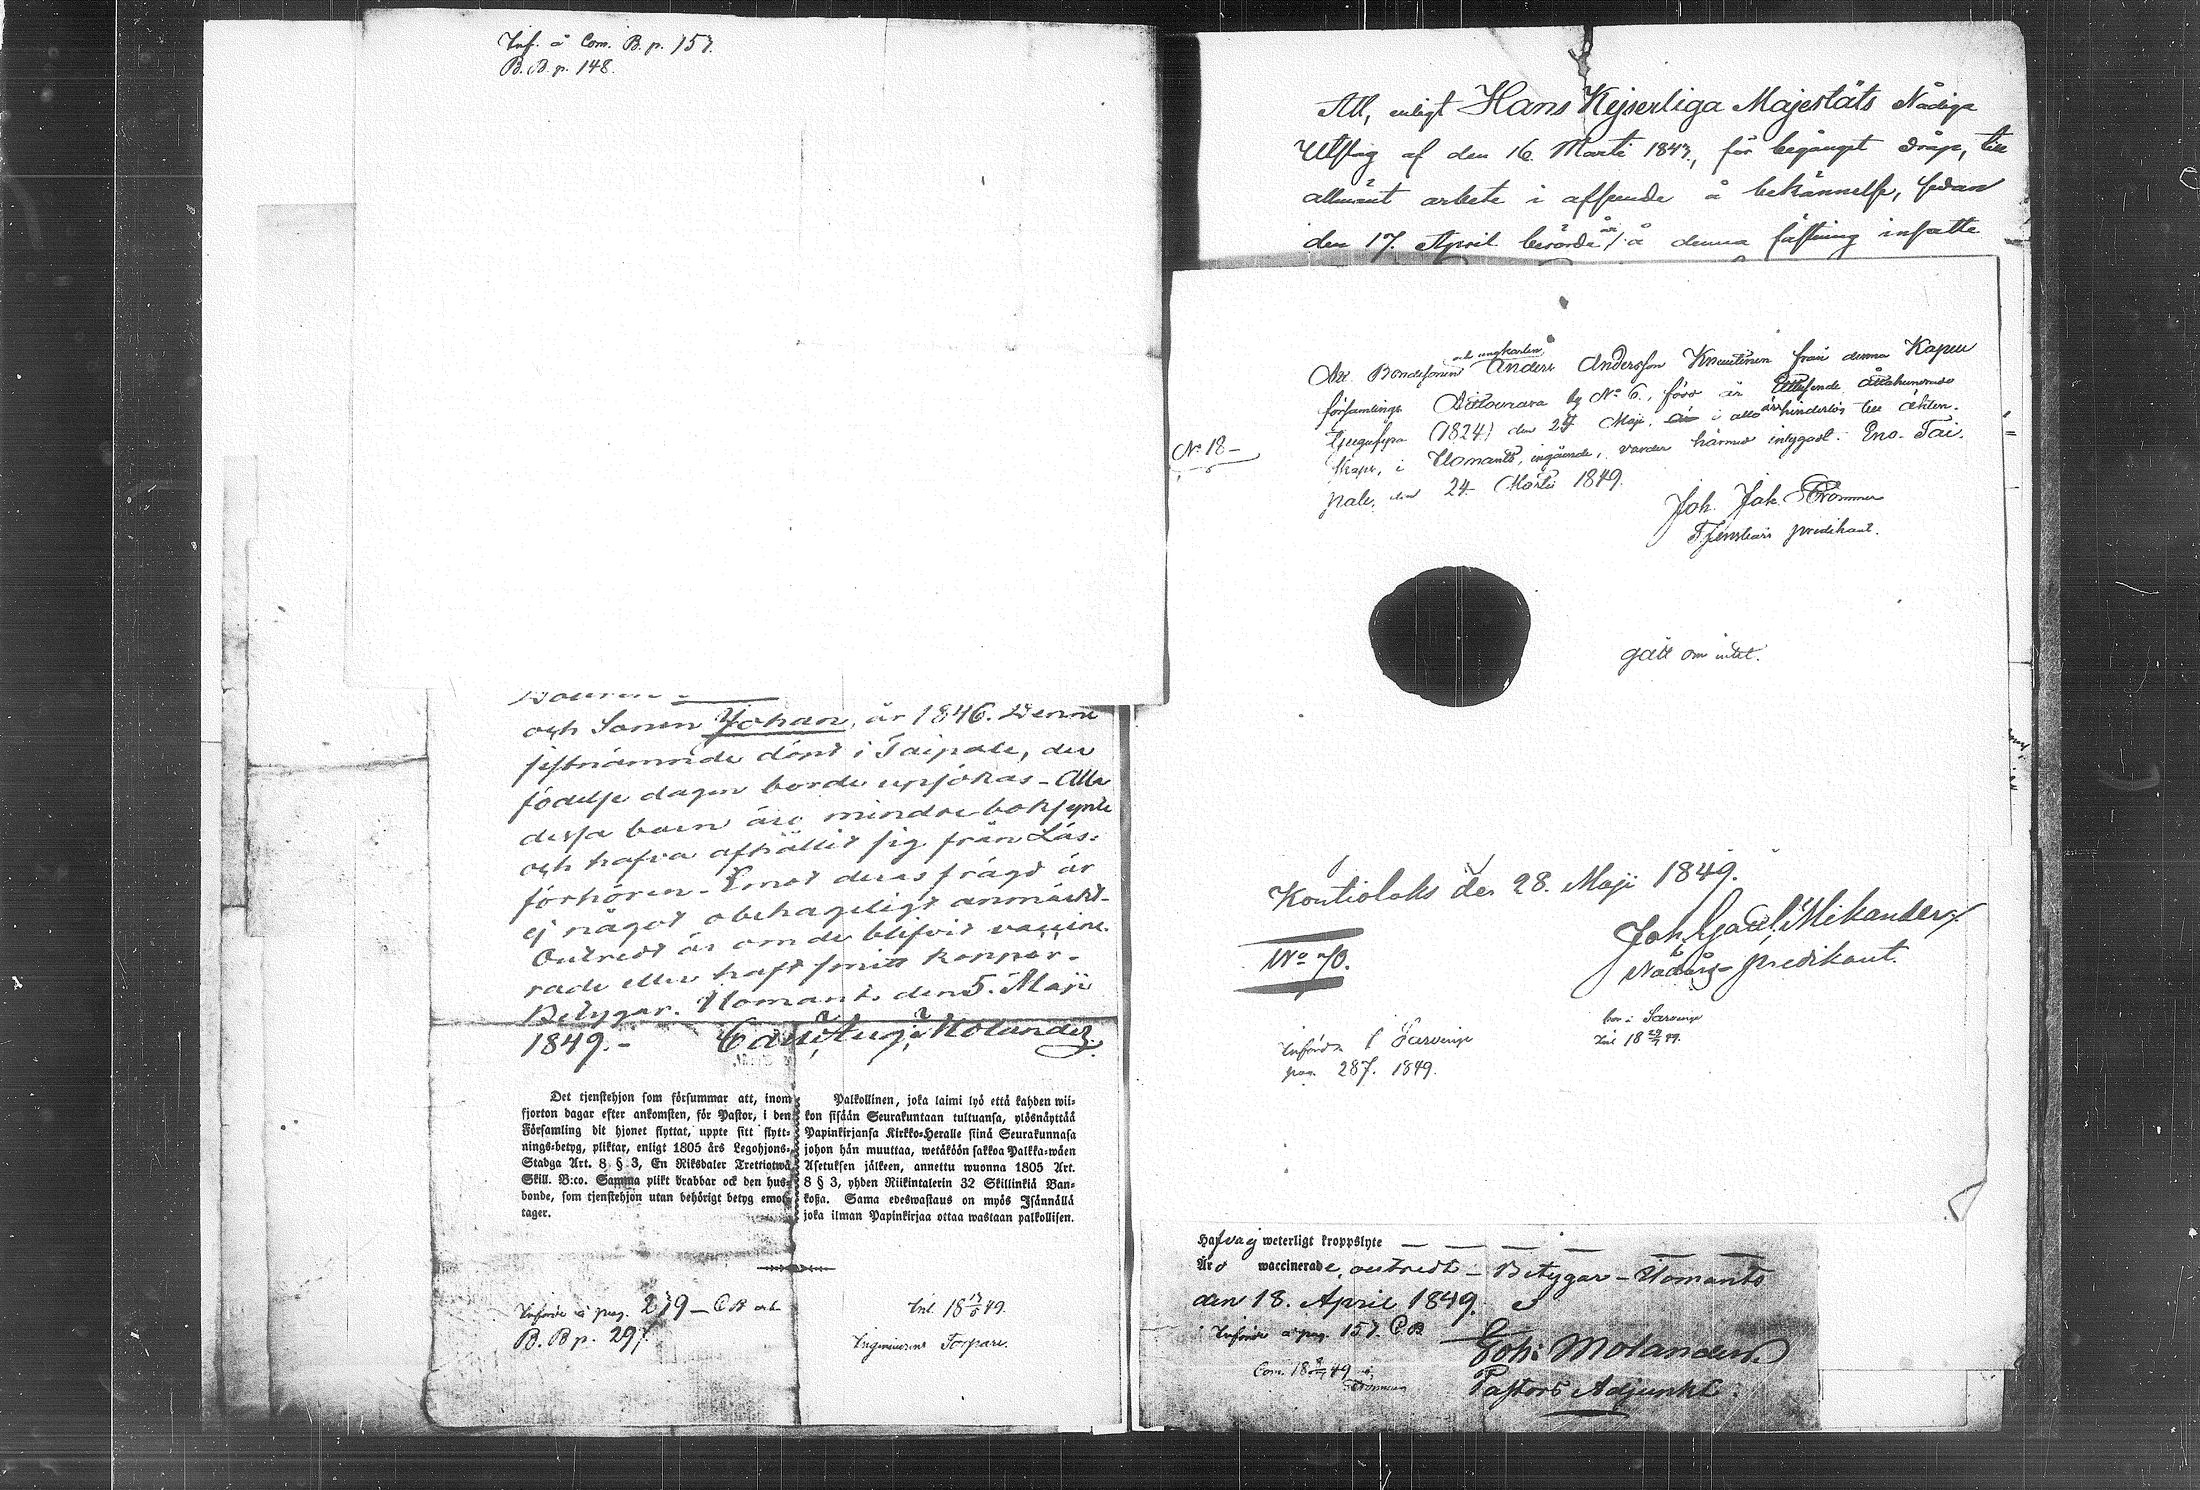 Inf. å Com. B. p. 157.
B. B. p. 148.
och Sonen Johan, är 1846. Denne
sistnämnde döpt i Taipale, der
födelse dagen borde upsökas - Alla
dessa barn äro mindre bokkynte
och hafva afhållit sig från Läs-
förhören - Emot deras frägd är
ej något obehageligt anmärkt -
Outredt är om de blifvit vaccine-
rade eller haft smitt koppor -
Betygar. Ilomants den 5. Maji
1849. - Carl Aug: Molander.
Det tjenstehjon som försummar att, inom
fjorton dagar efter ankomsten, för Pastor, i den
Församling dit hjonet flyttat, uppte sitt flytt-
nings-betyg, pliktar, enligt 1805 års Legohjons-
Stadga Art. 8 § 3, En Riksdaler Trettiotwå
Skill. B:co. Samma plikt drabbar ock den hus-
bonde, som tjenstehjon utan behörigt betyg emot-
tager.
Palkollinen, joka laimi lyö että kahden wii-
kon sisään Seurakuntaan tultuansa, ylösnäyttää
Papinkirjansa Kirkko-Heralle siinä Seurakunnasa
johon hän muuttaa, wetäköön sakkoa Palkka-wäen
Asetuksen jälkeen, annettu wuonna 1805 Art.
8 § 3, yhden Riikintalerin 32 Skillinkiä Ban-
kosa. Sama edeswastaus on myös Isännällä
joka ilman Papinkirjaa ottaa wastaan palkollisen.
Införde å pag. 279 - C B och
B. B p. 297.
Inl. 18 17/5 49.
Ingeniörens Torpare.
Att, enligt Hans Kejserliga Majestäts Nådiga
Utslag af den 16. Martii 1847, för begånget dråp, till
allmänt arbete i afseende å bekännelse, sedan
den 17. April berörde år å denna fästning insatte
No 18 -
Att Bondesonen och ungkarlen Anders Andersson Knuutinen från denna Kapell
församlings by No 6., född år Ettusende åttahundrade
tjugufyra (1824) den 24 Maji, i allo är hinderlös till äkten-
skaps, i Ilomants, ingående, varder härmed intygadt. Eno-Tai-
pale, den 24 Martii 1849.
Joh. Jak. Frommer
Tjenstårs predikant.
gått om intet.
Kontiolaks den 28. Maji 1849.
Joh. Gabl. Mikander
Nådårs-predikant.
No 70.
Införd i Sarvinge
pag. 287. 1849.
bor i Sarvinge
Hafva ej weterligt kroppslyte
Äro waccinerade, outredt - Betygar - Ilomants
den 18. April 1849.
Införde å pag. 157. C B
Joh: Molander.
Pastors Adjunkt.